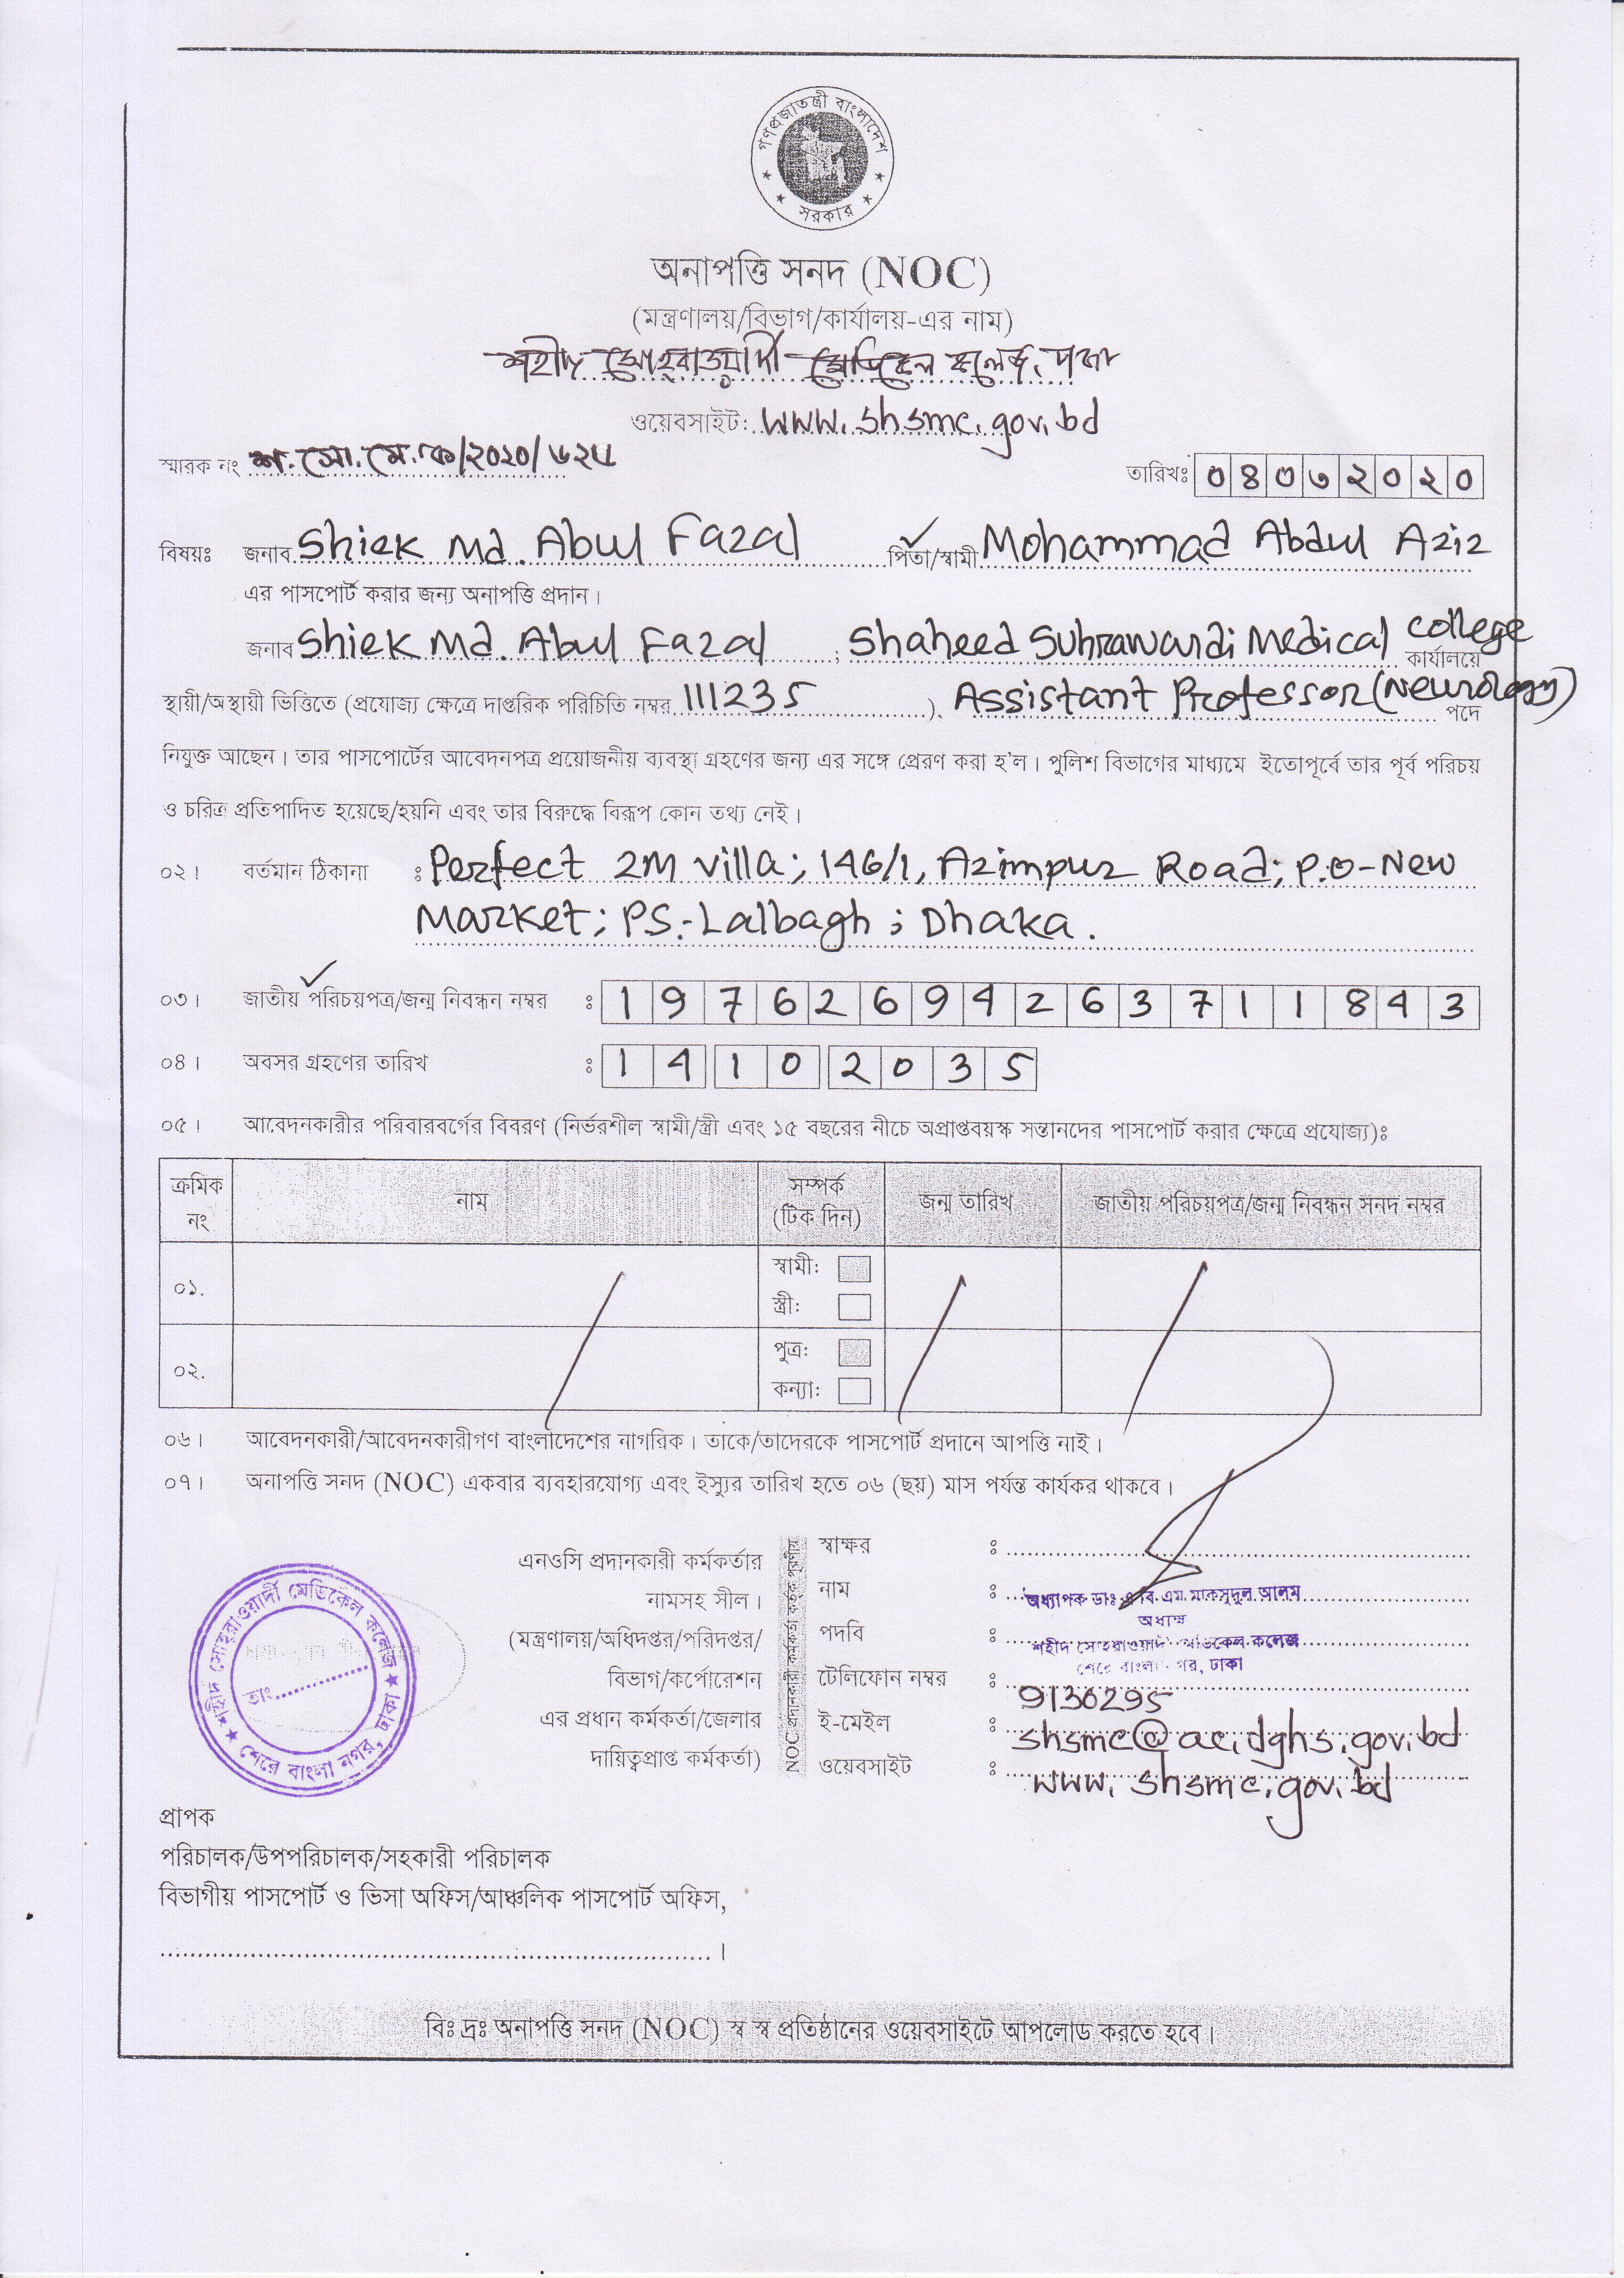 গণপ্রজাতন্ত্রী বাংলাদেশ
সরকার
অনাপত্তি সনদ (NOC)
(মন্ত্রণালয়/বিভাগ/কার্যালয়-এর নাম)
শহীদ সোহরাওয়ার্দী মেডিকেল কলেজ, ঢাকা
ওয়েবসাইট: www.shsmc.gov.bd
স্মারক নং শ.সো.মে.ক/২০২০/ তারিখঃ ০৪০৩২০২০
বিষয়ঃ জনাব Shiek Md. Abul Fazal পিতা/স্বামী Mohammad Abdul Aziz
এর পাসপোর্ট করার জন্য অনাপত্তি প্রদান।
জনাব Shiek Md. Abul Fazal, Shaheed Suhrawardi Medical College কার্যালয়ে
স্থায়ী/অস্থায়ী ভিত্তিতে (প্রযোজ্য ক্ষেত্রে দাপ্তরিক পরিচিতি নম্বর 111235), Assistant Professor (Neurology) পদে
নিযুক্ত আছেন। তার পাসপোর্টের আবেদনপত্র প্রয়োজনীয় ব্যবস্থা গ্রহণের জন্য এর সঙ্গে প্রেরণ করা হ'ল। পুলিশ বিভাগের মাধ্যমে ইতোপূর্বে তার পূর্ব পরিচয়
ও চরিত্র প্রতিপাদিত হয়েছে/হয়নি এবং তার বিরুদ্ধে বিরূপ কোন তথ্য নেই।
০২। বর্তমান ঠিকানা : Perfect 2M Villa; 146/1, Azimpur Road; P.O-New
Market; PS.-Lalbagh; Dhaka.
০৩। জাতীয় পরিচয়পত্র/জন্ম নিবন্ধন নম্বর : 19762694263711843
০৪। অবসর গ্রহণের তারিখ : 14102035
০৫। আবেদনকারীর পরিবারবর্গের বিবরণ (নির্ভরশীল স্বামী/স্ত্রী এবং ১৫ বছরের নীচে অপ্রাপ্তবয়স্ক সন্তানদের পাসপোর্ট করার ক্ষেত্রে প্রযোজ্য)ঃ
ক্রমিক নং নাম সম্পর্ক (টিক দিন) জন্ম তারিখ জাতীয় পরিচয়পত্র/জন্ম নিবন্ধন সনদ নম্বর
০১. স্বামী:
স্ত্রী:
০২. পুত্র:
কন্যা:
০৬। আবেদনকারী/আবেদনকারীগণ বাংলাদেশের নাগরিক। তাকে/তাদেরকে পাসপোর্ট প্রদানে আপত্তি নাই।
০৭। অনাপত্তি সনদ (NOC) একবার ব্যবহারযোগ্য এবং ইস্যুর তারিখ হতে ০৬ (ছয়) মাস পর্যন্ত কার্যকর থাকবে।
শহীদ সোহরাওয়ার্দী মেডিকেল কলেজ
তাং
শেরে বাংলা নগর, ঢাকা
এনওসি প্রদানকারী কর্মকর্তার
নামসহ সীল।
(মন্ত্রণালয়/অধিদপ্তর/পরিদপ্তর/
বিভাগ/কর্পোরেশন
এর প্রধান কর্মকর্তা/জেলার
দায়িত্বপ্রাপ্ত কর্মকর্তা)
NOC প্রদানকারী কর্মকর্তা কর্তৃক পূরণীয়
স্বাক্ষর :
নাম : অধ্যাপক ডাঃ এ বি. এম. মাকসুদুল আলম
অধ্যক্ষ
পদবি : শহীদ সোহরাওয়ার্দী মেডিকেল কলেজ
শেরে বাংলা নগর, ঢাকা
টেলিফোন নম্বর : 9130295
ই-মেইল : shsmc@ac.dghs.gov.bd
ওয়েবসাইট : www.shsmc.gov.bd
প্রাপক
পরিচালক/উপপরিচালক/সহকারী পরিচালক
বিভাগীয় পাসপোর্ট ও ভিসা অফিস/আঞ্চলিক পাসপোর্ট অফিস,
।
বিঃ দ্রঃ অনাপত্তি সনদ (NOC) স্ব স্ব প্রতিষ্ঠানের ওয়েবসাইটে আপলোড করতে হবে।